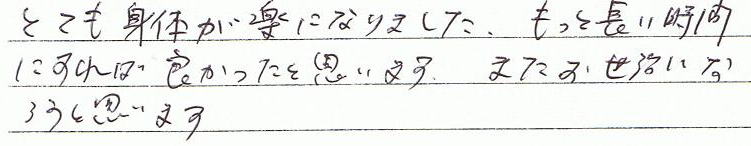 とても身体が楽になりました、もっと長い時間
にすれば良かったと思います。またお世話にな
ろうと思います